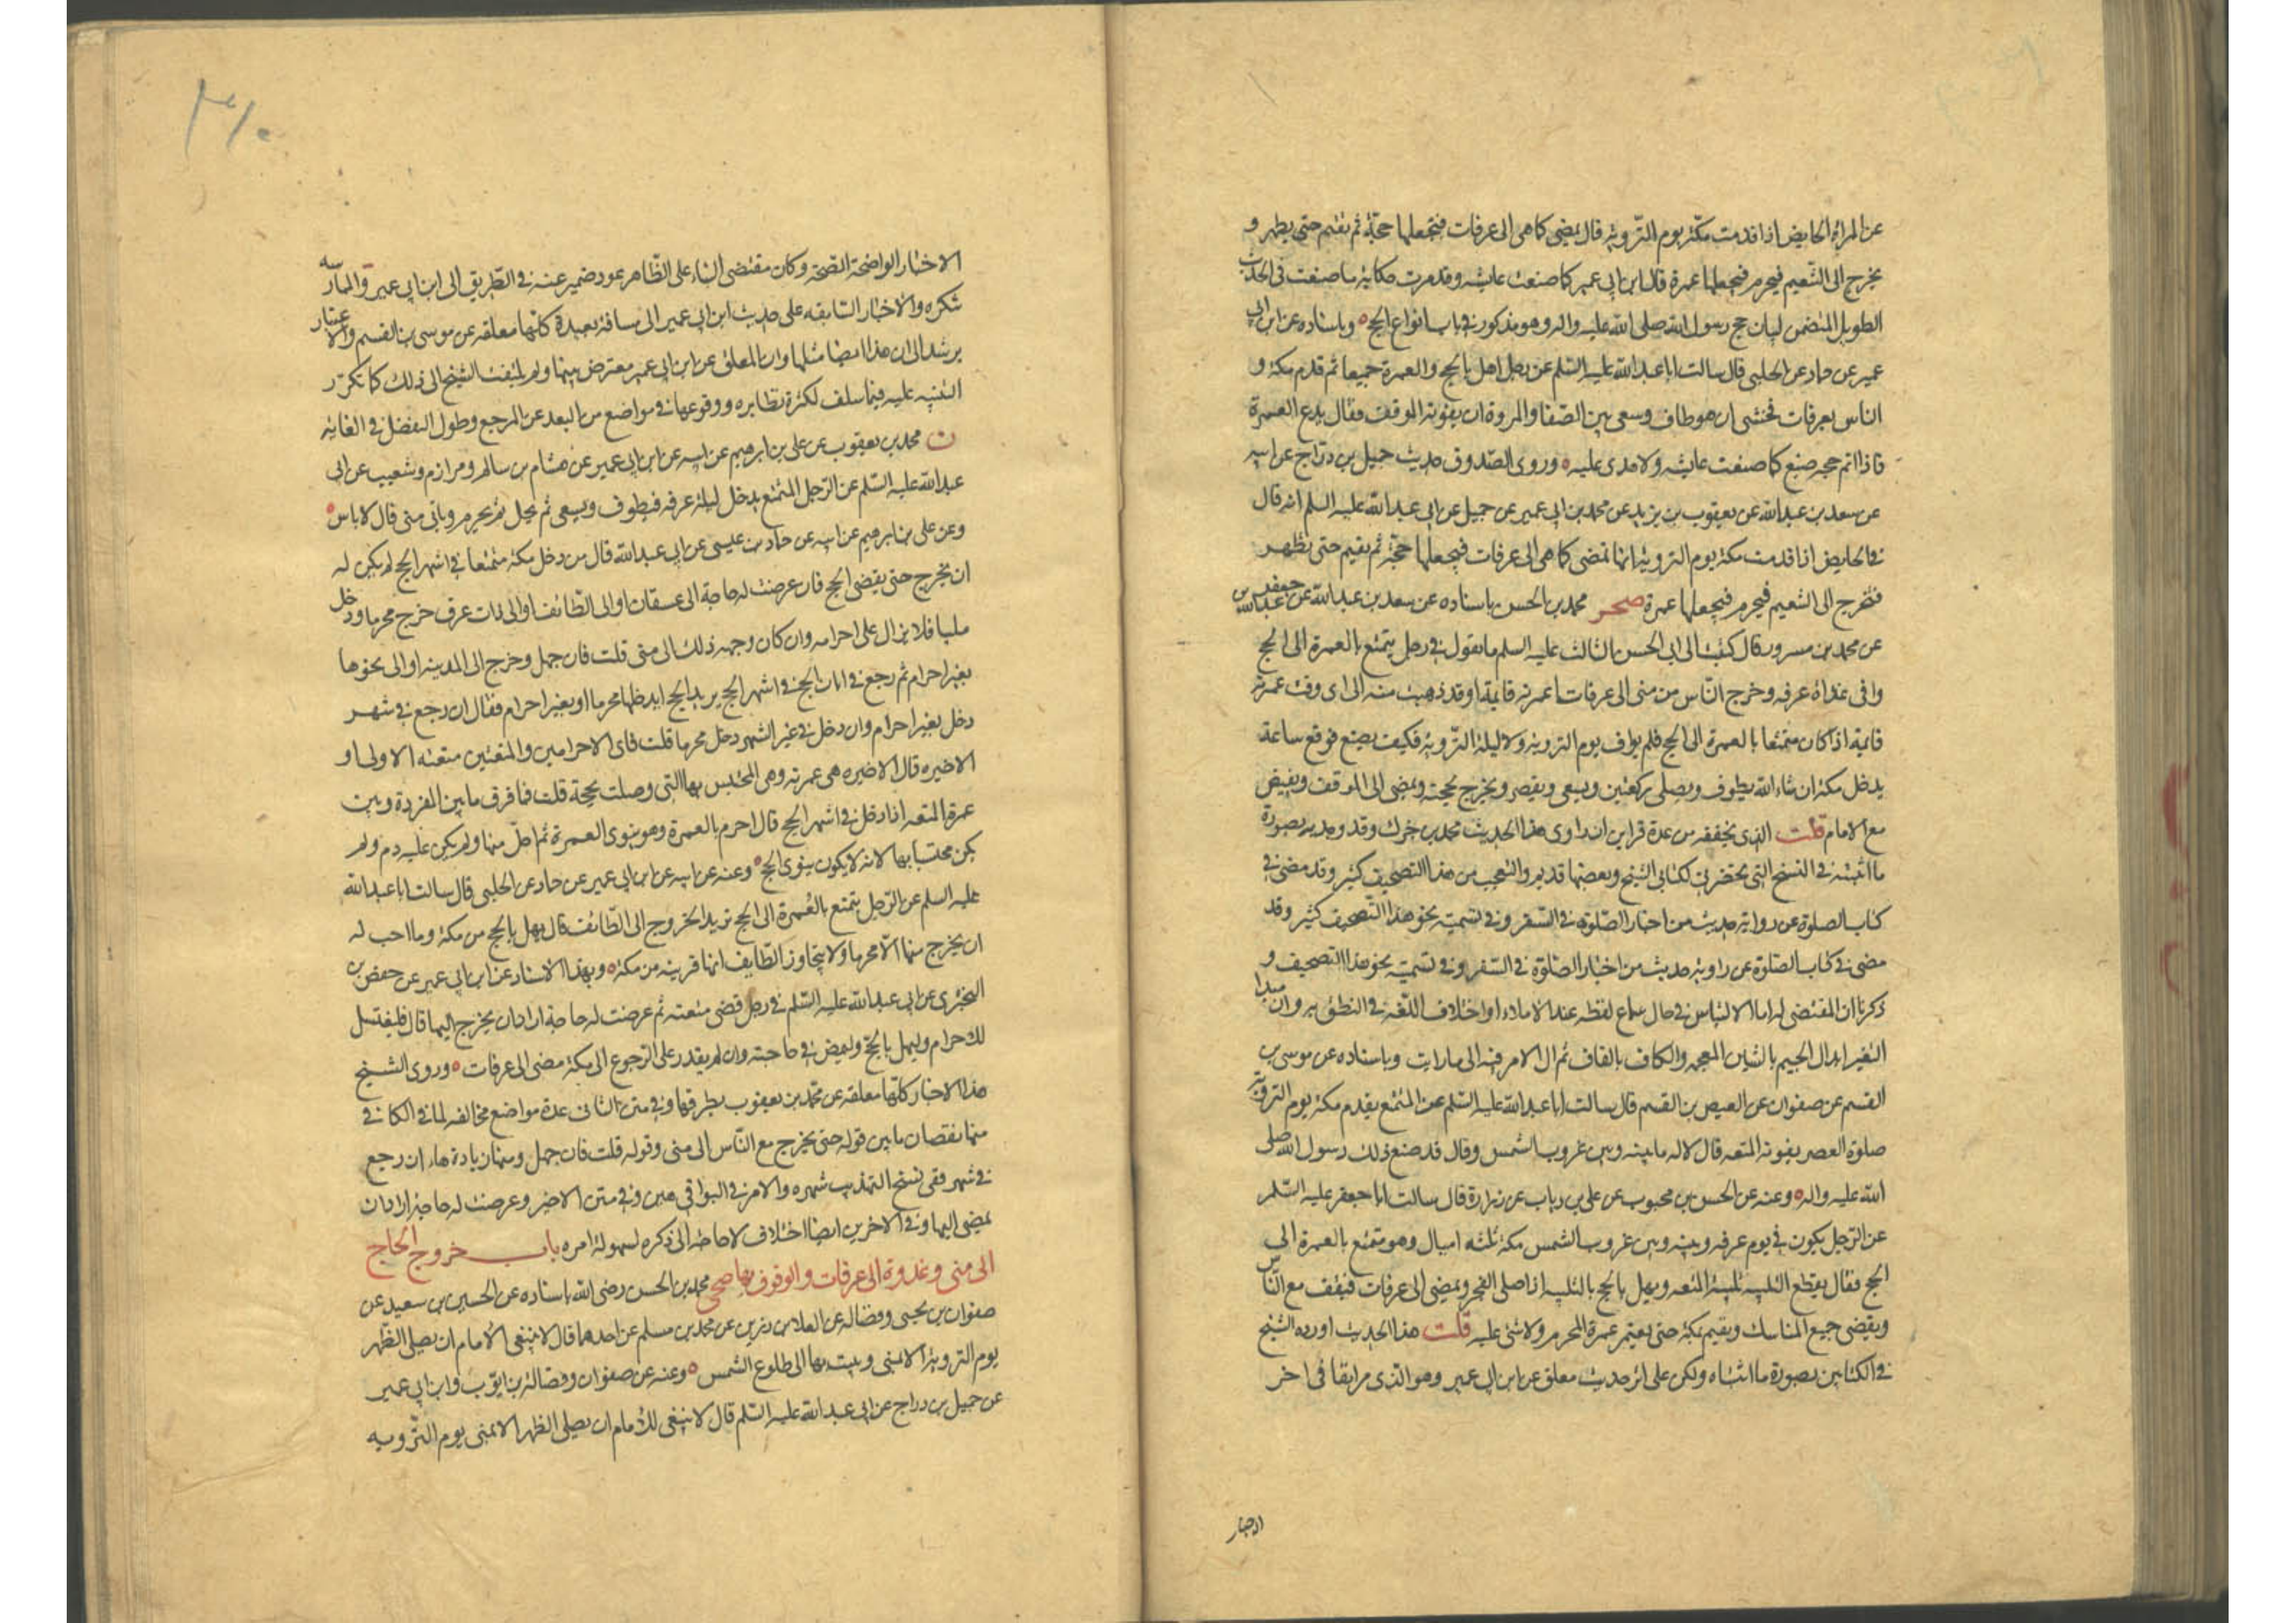 عن المراة الحايض اذا قدمت مكة يوم التروية قال تمضى كما هى الى عرفات فتجعلها حجة ثم تقيم حتى يطهر و
يخرج الى التنعيم فيحرم فيجعلها عمرة قال ابن ابى عمير كما صنعت عايشه وقد مرت حكاية ما صنعت فى الحديث
الطويل المتضمن لبيان حج رسول الله صلى الله عليه واله وهو مذكور فى باب انواع الحج ٥ وباسناده عن ابن ابى
عمير عن حماد عن الحلبى قال سالت ابا عبد الله عليه السلم عن رجل اهل بالحج والعمرة جميعا ثم قدم مكة و
الناس بعرفات فخشى ان هو طاف وسعى بين الصفا والمروة ان يفوته الموقف فقال يدع العمرة
فاذا اتم حجه صنع كما صنعت عايشه ولا هدى عليه ٥ وروى الصدوق حديث جميل بن دراج عن ابيه
عن سعد بن عبد الله عن يعقوب بن يزيد عن محمد بن ابى عمير عن جميل عن ابى عبد الله عليه السلم انه قال
فى الحايض اذا قدمت مكة يوم التروية انها تمضى كما هى الى عرفات فيجعلها حجة ثم يقيم حتى تطهر
فتخرج الى التنعيم فيحرم فيجعلها عمرة صحر محمد بن الحسن باسناده عن سعد بن عبد الله عن عبد الله بن جعفر
عن محمد بن مسرور قال كتبت الى ابى الحسن الثالث عليه السلم ما تقول فى رجل يتمتع بالعمرة الى الحج
وافى غداة عرفه وخرج الناس من منى الى عرفات اعمرته قايمة او قد ذهبت منه الى اى وقت عمرته
قايمة اذا كان متمتعا بالعمرة الى الحج فلم يواف يوم التروية ولا ليلة التروية فكيف يصنع فوقع ساعة
يدخل مكة ان شاء الله يطوف ويصلى ركعتين ويسعى ويقصر ويخرج بحجته ويمضى الى الموقف ويفيض
مع الامام قلت الذى يخففه من عدة قراين ان راوى هذا الحديث محمد بن جزك وقد وجد به بصورة
ما اثبته فى النسخ التى تحضرنى لكتابى الشيخ وبعضها قديم والتعجب من هذا التصحيف كثير وقد مضى فى
كتاب الصلوة عن رواية حديث من اخبار الصلوة فى السفر وفى تسميته نحو هذا التصحيف كثير وقد
مضى فى كتاب الصلوة عن راوية حديث من اخبار الصلوة فى السفر وفى تسميته نحو هذا التصحيف و
ذكرنا ان المقتضى له اما الالتباس فى حال سماع لفظه عند الاملاء او اختلاف اللغة فى النطق به وان مبدا
التغير ابدال الجيم بالشين المعجمه والكاف بالقاف ثم ال الامر فيه الى ما رايت وباسناده عن موسى بن
القسم عن صفوان عن العيص بن القسم قال سالت ابا عبد الله عليه السلم عن المتمتع يقدم مكة يوم التروية
صلوة العصر يفوته المتعه قال لا له ما بينه وبين غروب الشمس وقال قد صنع ذلك رسول الله صلى
الله عليه واله ٥ وعنه عن الحسن بن محبوب عن على بن رياب عن زرارة قال سالت ابا جعفر عليه السلم
عن الرجل يكون فى يوم عرفه وبينه وبين غروب الشمس مكة ثلثه اميال وهو متمتع بالعمرة الى
الحج فقال يقطع التلبيه تلبية المتعه ويهل بالحج بالتلبيه اذا صلى الفجر ويمضى الى عرفات فيقف مع الناس
ويقضى جميع المناسك ويقيم بمكة حتى يعتمر عمرة المحرم ولا شئ عليه قلت هذا الحديث اورده الشيخ
فى الكتابين بصورة ما اثبتناه ولكن على اثر حديث معلق عن ابن ابى عمير وهو الذى مر انفا فى اخر
الاخبار
الاخبار الواضحة الصحة وكان مقتضى البناء على الظاهر عود ضمير عنه فى الطريق الى ابن ابى عمير والممارسه
تنكره والاخبار السابقه على حديث ابن ابى عمير الى مسافة بعيدة كلها معلقه عن موسى بن القسم والاعتبار
يرشد الى ان هذا ايضا مثلها وان المعلق عن ابن ابى عمير معترض بينها ولم يلتفت الشيخ الى ذلك كما تكرر
التنبيه عليه فيما سلف لكثرة نظايره ووقوعها فى مواضع من البعد عن المرجع وطول الفصل فى الغايه
ن محمد بن يعقوب عن على بن ابرهيم عن ابيه عن ابن ابى عمير عن هشام بن سالم ومرازم وشعيب عن ابى
عبد الله عليه السلم عن الرجل المتمتع يدخل ليلة عرفه فيطوف ويسعى ثم يحل ثم يحرم وياتى منى قال لا باس ٥
وعن على بن ابرهيم عن ابيه عن حماد بن عيسى عن ابى عبد الله قال من دخل مكة متمتعا فى اشهر الحج لم يكن له
ان يخرج حتى يقضى الحج فان عرضت له حاجة الى عسفان او الى الطائف او الى ذات عرق خرج محرما ودخل
ملبيا فلا يزال على احرامه وان كان وجهه ذلك الى منى قلت فان جهل وخرج الى المدينه او الى نحوها
بغير احرام ثم رجع فى ابان الحج فى اشهر الحج يريد الحج ايدخلها محرما او بغير احرام فقال ان رجع فى شهر
دخل بغير احرام وان دخل فى غير الشهر دخل محرما قلت فاى الاحرامين والمتعتين متعته الاولى او
الاخيره قال الاخيره هى عمرته وهى المحتبس بها التى وصلت بحجة قلت فما فرق ما بين المفردة وبين
عمرة المتعه اذا دخل فى اشهر الحج قال احرم بالعمرة وهو ينوى العمرة ثم احل منها ولم يكن عليه دم ولم
يكن محتبسا بها لانه لا يكون ينوى الحج ٥ وعنه عن ابيه عن ابن ابى عمير عن حماد عن الحلبى قال سالت ابا عبد الله
عليه السلم عن الرجل يتمتع بالعمرة الى الحج يريد الخروج الى الطائف قال يهل بالحج من مكة وما احب له
ان يخرج منها الا محرما ولا يتجاوز الطايف انها قريبه من مكة ٥ وبهذا الاسناد عن ابن ابى عمير عن حفص بن
البخترى عن ابى عبد الله عليه السلم فى رجل قضى متعته ثم عرضت له حاجة اراد ان يخرج اليها قال فليغتسل
للاحرام وليهل بالحج وليمض فى حاجته وان لم يقدر على الرجوع الى مكة مضى الى عرفات ٥ وروى الشيخ
هذا الاخبار كلها معلقه عن محمد بن يعقوب بطرقها وفى متن الثانى عدة مواضع مخالفه لما فى الكافى
منها نقصان ما بين قوله حتى يخرج مع الناس الى منى وقوله قلت فان جهل ومنها زيادة هاء ان رجع
فى شهر ففى نسخ التهذيب شهره والامر فى البواقى هين وفى متن الاخير وعرضت له حاجة اراد ان
يمضى اليها وفى الاخرين ايضا اختلاف لا حاجه الى ذكره لسهولة امره باب خروج الحاج
الى منى وغدوة الى عرفات والوقوف بها صحى محمد بن الحسن رضى الله باسناده عن الحسين بن سعيد عن
صفوان بن يحيى وفضاله عن العلا بن رزين عن محمد بن مسلم عن احدهما قال لا ينبغى للامام ان يصلى الظهر
يوم التروية الا بمنى ويبيت بها الى طلوع الشمس ٥ وعنه عن صفوان وفضالة بن ايوب وابن ابى عمير
عن جميل بن دراج عن ابى عبد الله عليه السلم قال لا ينبغى للامام ان يصلى الظهر الا بمنى يوم الترويه